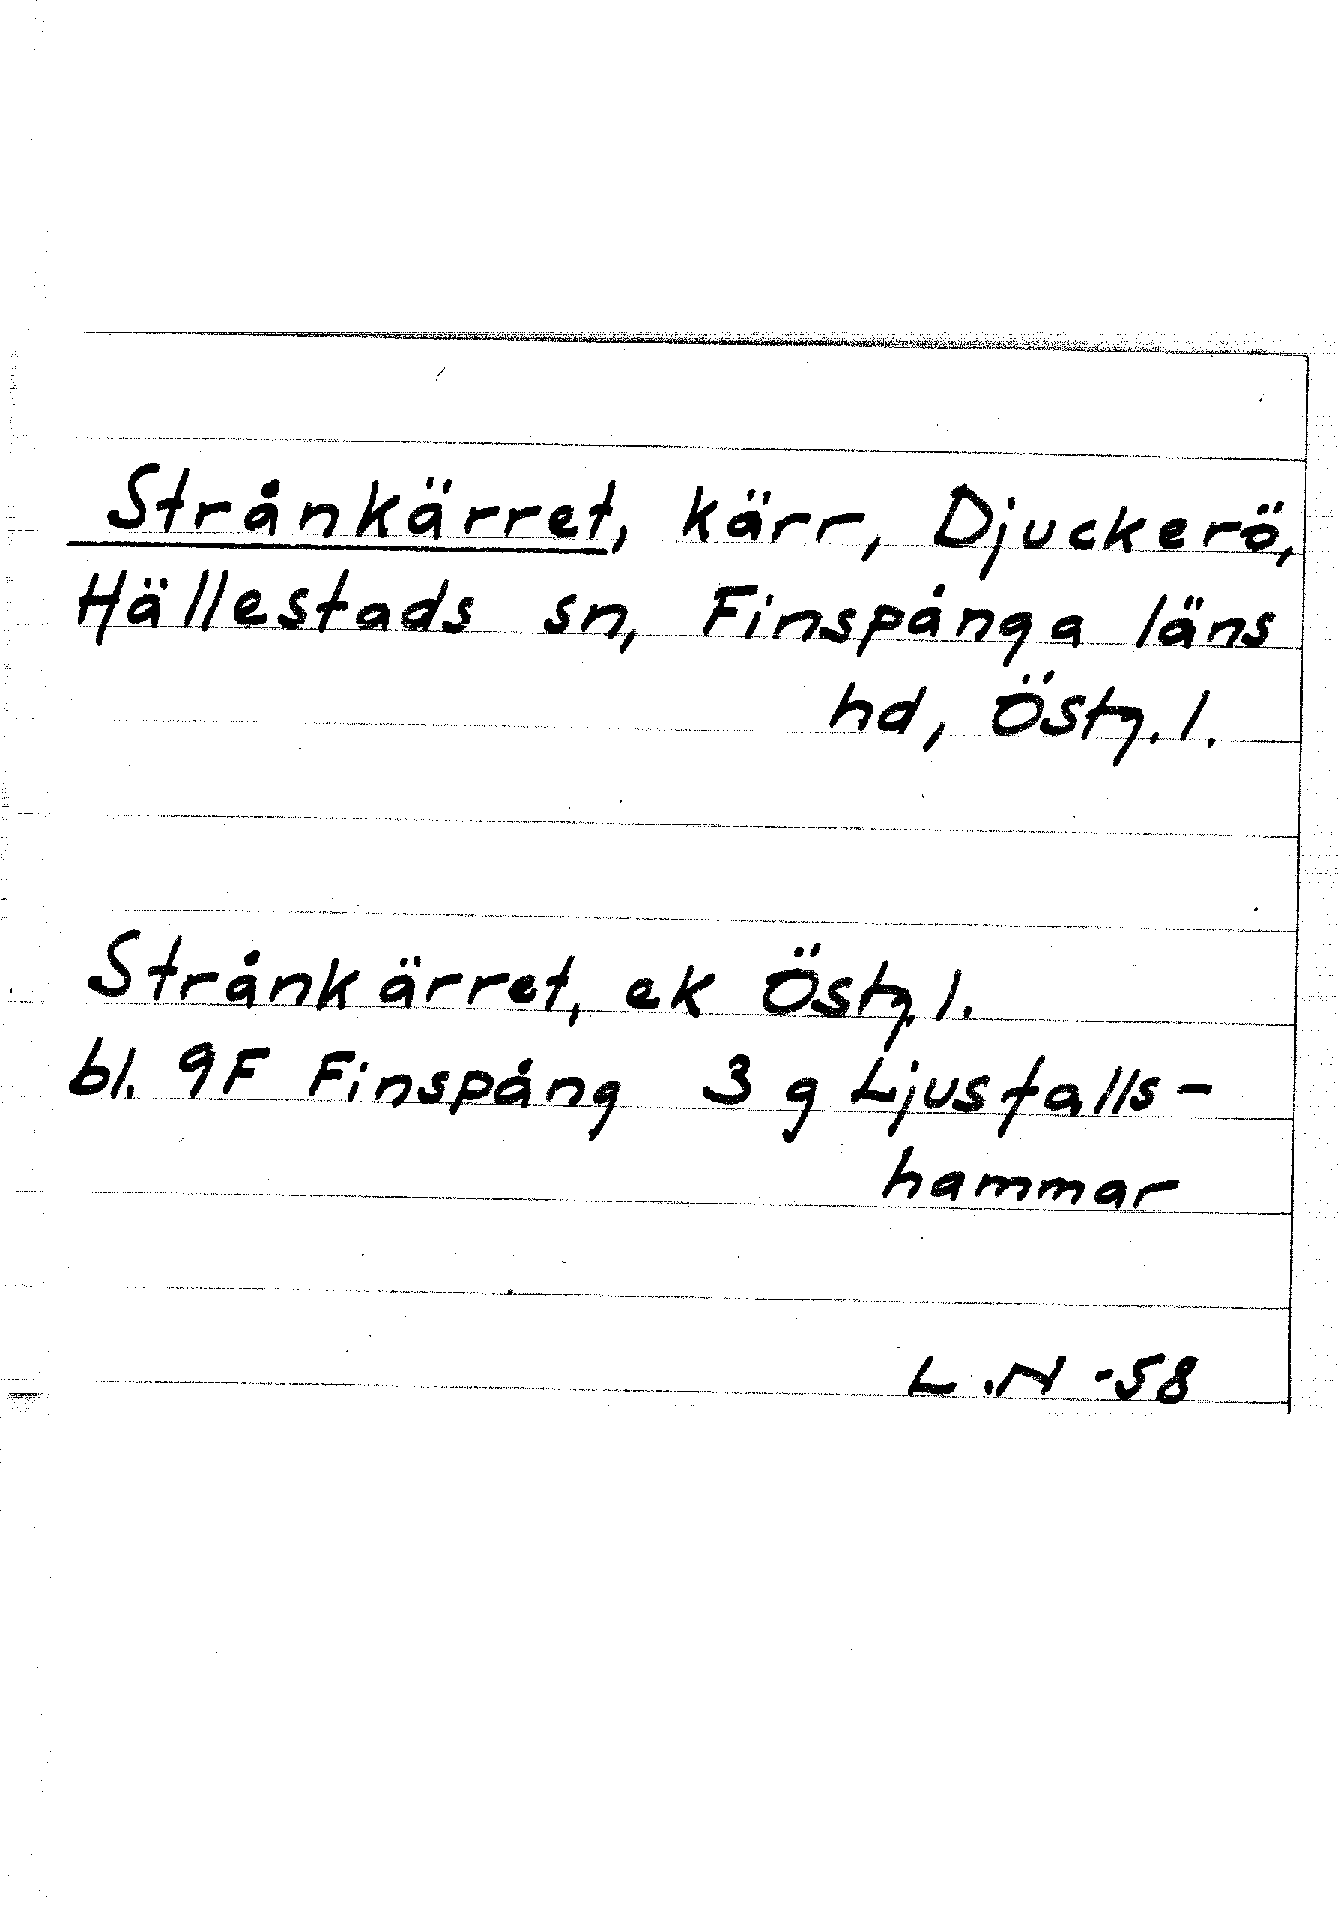 Strånkärret, kärr, Djuckerö,
Hällestads sn, Finspånga läns
hd, Östg. l.
Strånkärret, ek Östg. l.
bl. 9F Finspång 3 g Ljusfalls-
hammar
L.N -58